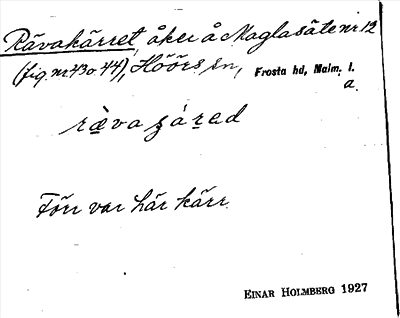 Rävakärret, åker å Maglasäte nr 12
(fig. nr 43 o 44), Höörs sn, Frosta hd, Malm. l.
a.
Förr var här kärr.
EINAR HOLMBERG 1927